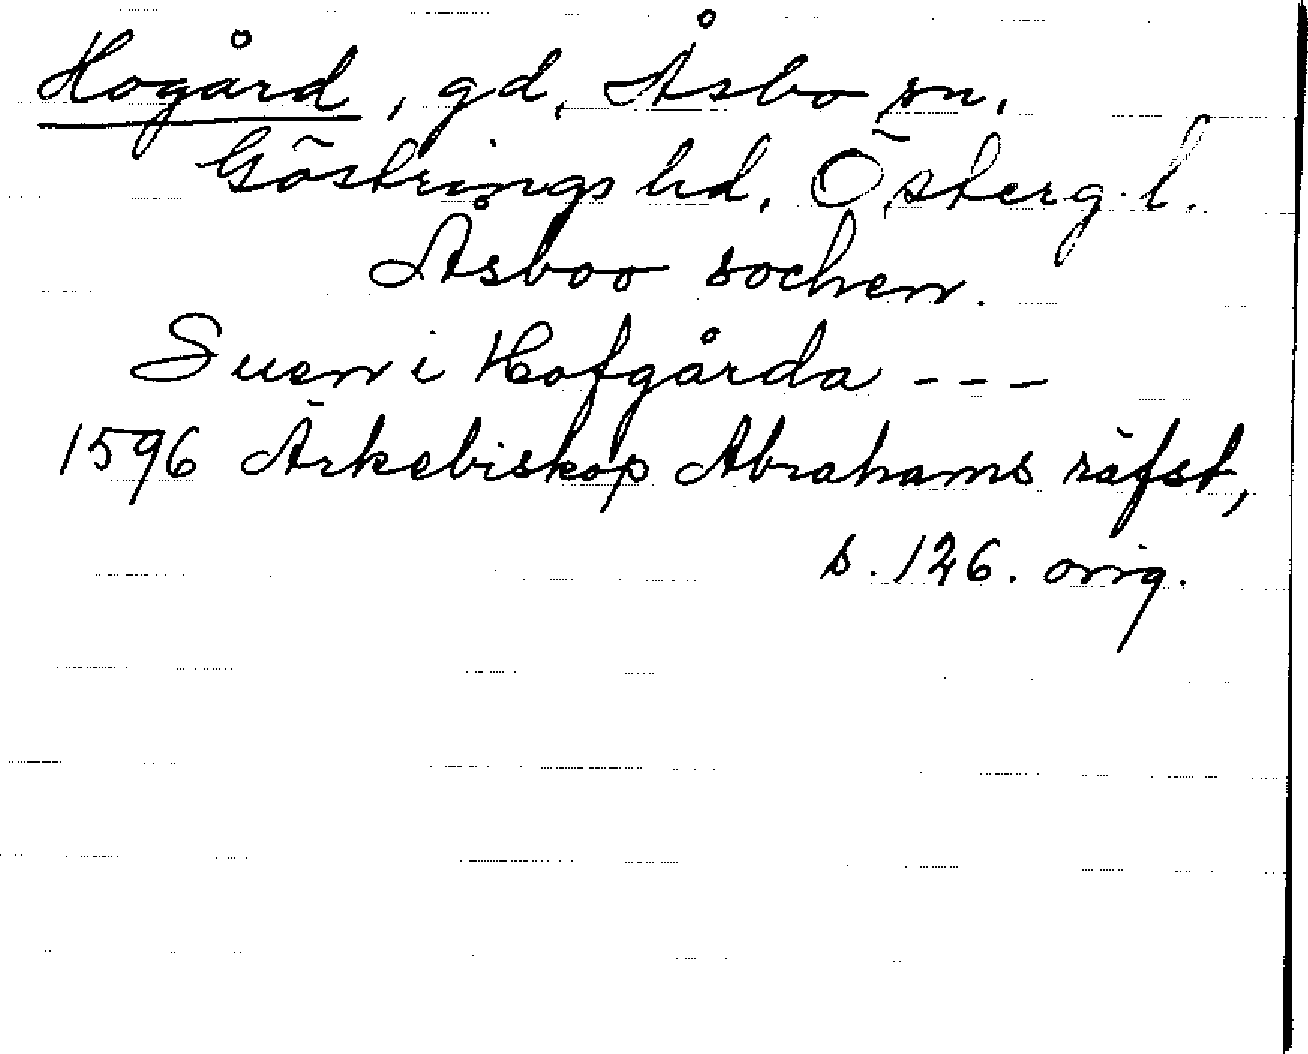 Hogård, gd, Åsbo sn,
Göstrings hd, Österg. l.
Åsboo sochen.
Suen i Hofgårda ---
1596 Ärkebiskop Abrahams räfst,
s. 126. orig.